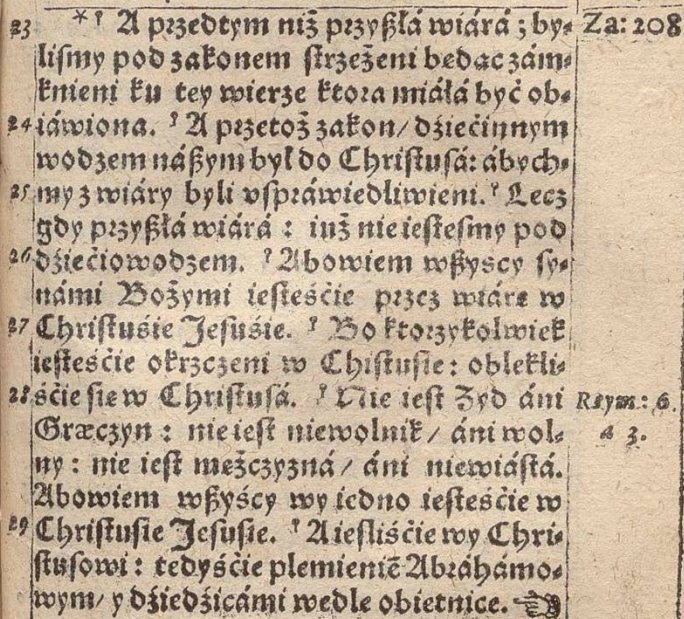 23 *⁊ A przedtym niż przyßłá wiárá ; by⸗ Za: 208
liſmy pod zakonem ſtrzeżeni bedac zám⸗
knieni ku tey wierze ktora miáłá być ob⸗
24 iáwiona. ⁊ A przetoż zakon/ dźiećinnym
wodzem náßym był do Chriſtuſá: ábych⸗
25 my z wiáry byli vſpráwiedliwieni. ⁊ Lecz
gdy przyßłá wiárá : iuż nie ieſteſmy pod
26 dźiećiowodzem. ⁊ Abowiem wßyscy ſy⸗
námi Bożymi ieſteśćie przez wiáre w
27 Chriſtuśie Jeſuśie. ⁊ Bo ktorzykolwiek
ieſteśćie okrzczeni w Chiſtuſie : oblekli⸗
28 śćie ſie w Chriſtuſá. ⁊ Nie ieſt Żyd áni Rzym: 6.
Græczyn : nie ieſt niewolnik / áni wol⸗ a 3.
ny : nie ieſt mężczyzná / áni niewiáſtá.
Abowiem wßyśćy wy iedno ieſteśćie w
29 Chriſtuſie Jeſuſie. ⁊ A ieſliśćie wy Chri⸗
ſtuſowi : tedyśćie plemieniē Abráhámo⸗
wym/ y dźiedźicámi wedle obietnice. ☜